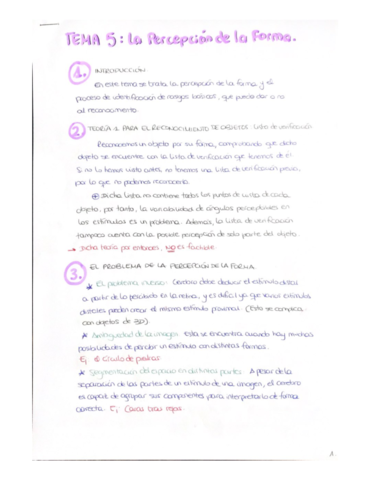 TEMA 5: La Percepción de la Forma.
1. INTRODUCCIÓN
En este tema se trata la percepción de la forma, y el
proceso de identificación de rasgos básicos, que puede dar o no
al reconocimiento.
2. TEORÍA PARA EL RECONOCIMIENTO DE OBJETOS: Lista de verificación
Reconocemos un objeto por su forma, comprobando que dicho
objeto se encuentre con la lista de verificación que tenemos de él.
Si no lo hemos visto antes, no tenemos una lista de verificación previa,
por lo que no podemos reconocerlo.
Dicha lista no contiene todos los puntos de vista de cada
objeto, por tanto, la variabilidad de ángulos perceptivos en
los estímulos es un problema. Además, la lista de verificación
tampoco cuenta con la posible percepción de solo parte del objeto.
→ Dicha teoría por entonces, NO es factible
3. EL PROBLEMA DE LA PERCEPCIÓN DE LA FORMA
* El problema inverso: Cerebro debe deducir el estímulo distal
a partir de lo percibido en la retina, y es difícil ya que varios estímulos
distales pueden crear el mismo estímulo proximal. (Esto se complica
con objetos de 3D).
* Ambigüedad de la imagen: Esta se encuentra cuando hay muchas
posibilidades de percibir un estímulo con distintas formas.
Ej Círculo de piedras
* Segmentación del espacio en distintas partes: A pesar de la
separación de las partes de un estímulo de una imagen, el cerebro
es capaz de agrupar sus componentes para interpretarlo de forma
correcta. Ej,
1.